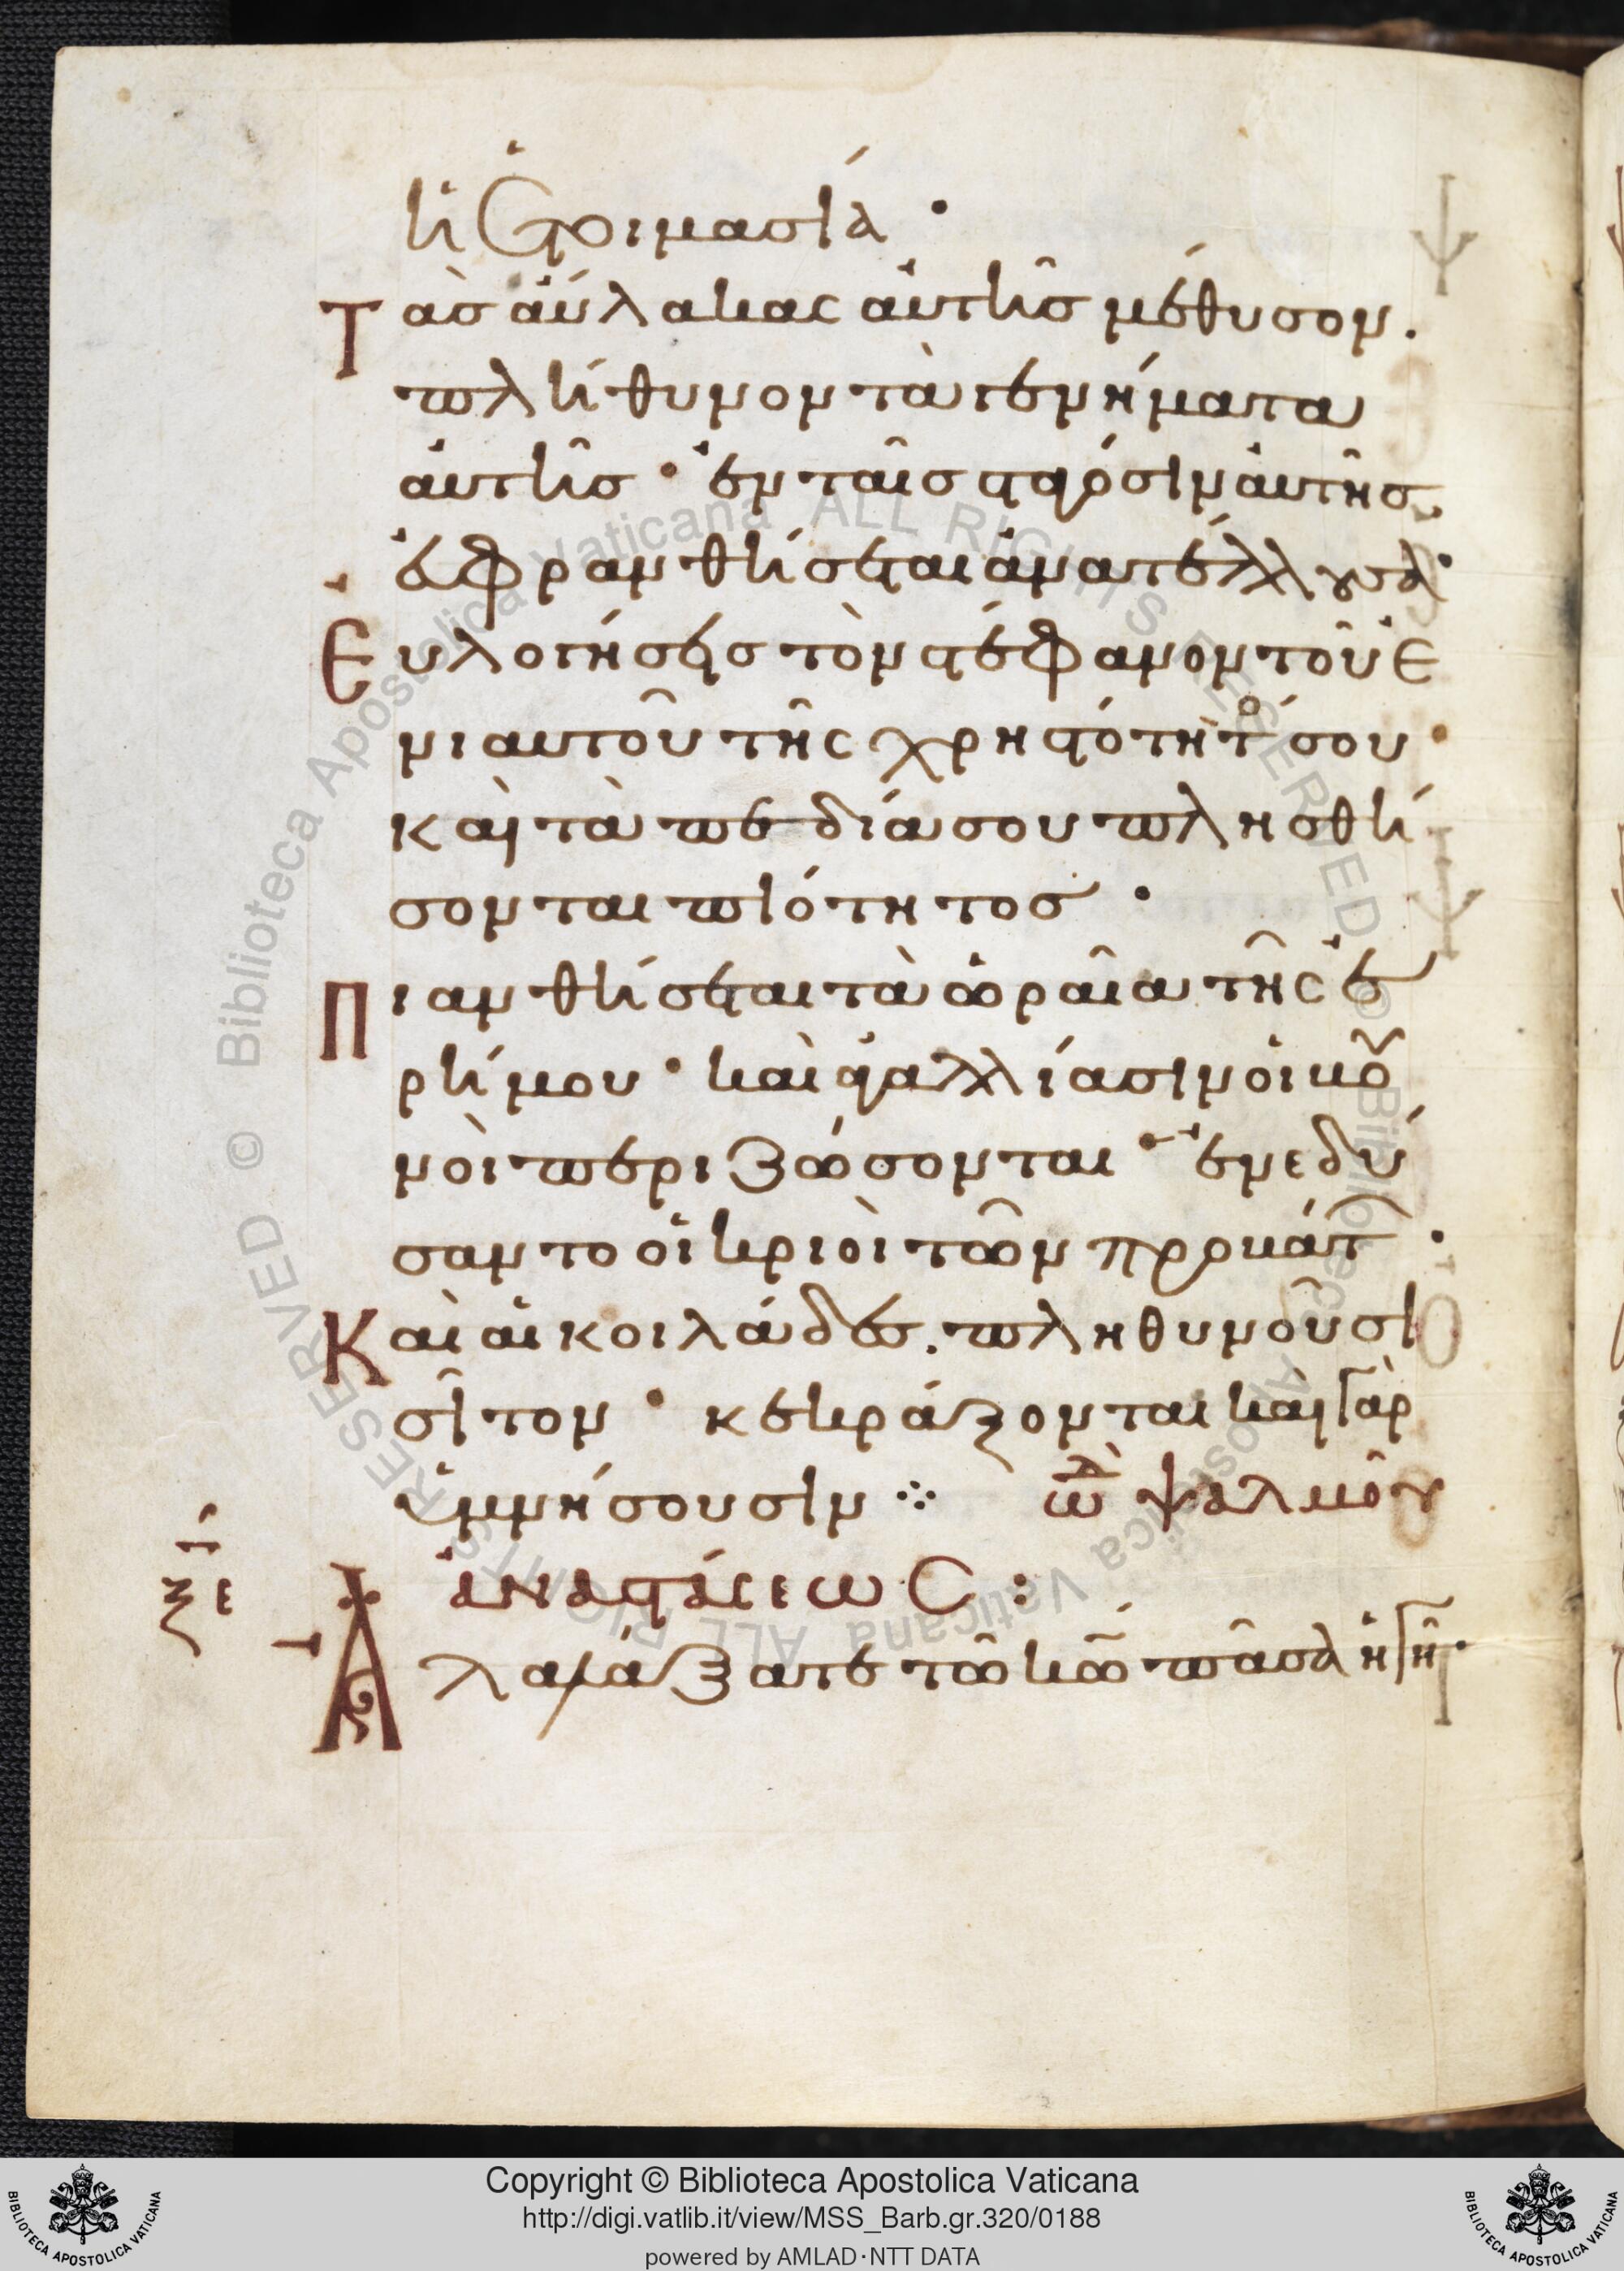 ἡ ἑτοιμασία ·
Τὰσ αὔλακας αὐτῆσ μέθυσον.
πλήθυνον τὰ γενήματα
αὐτῆσ · ἐν ταῖσ σταγόσιν αὐτῆσ
εὐφρανθήσεται ἀνατέλλουσα ·
Εὐλογήσεισ τὸν στέφανον τοῦ ἐ
νιαυτοῦ τῆς χρηστότητο σου ·
καὶ τὰ πεδία σου πλησθή
σονται πιότητοσ ·
Πιανθήσεται τὰ ὡραῖα τῆς ἐ
ρήμου · καὶ ἀγαλλίασιν οἱ βου
νοὶ περιζώσονται · ἐνεδύ
σαντο οἱ κριοὶ τῶν προβάτ ·
Καὶ αἱ κοιλάδεσ. πληθυνοῦσι
σῖτον · κεκράξονται καὶ γὰρ
ὑμνήσουσιν ⁘ ὠδ ψαλμοῦ
ξε ἀναστάσεως :
Ἀλαλάξατε τῶ κῶ πᾶσα ἡ γῆ ·
Copyright © Biblioteca Apostolica Vaticana
http://digi.vatlib.it/view/MSS_Barb.gr.320/0188
powered by AMLAD·NTT DATA
BIBLIOTECA APOSTOLICA VATICANA
BIBLIOTECA APOSTOLICA VATICANA
© Biblioteca Apostolica Vaticana ALL RIGHTS RESERVED
© Biblioteca Apostolica Vaticana ALL RIGHTS RESERVED